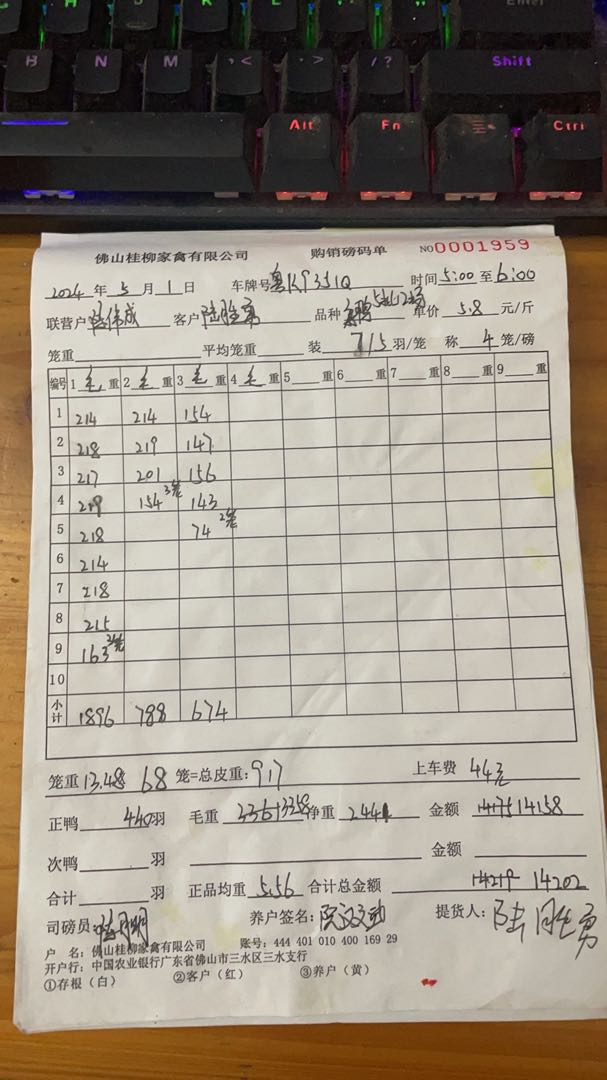 B N M , < . > / ? Shift
Alt Fn Ctrl
佛山桂柳家禽有限公司 购销磅码单 NO0001959
2024 年 5 月 1 日 车牌号 粤K9351Q 时间 5:00 至 6:00
联营户 伟成 客户 陆胜勇 品种 单价 5.8 元/斤
笼重 平均笼重 装 7/5 羽/笼 称 4 笼/磅
编号 1 毛 重 2 毛 重 3 毛 重 4 毛 重 5 重 6 重 7 重 8 重 9 重
1 214 214 154
2 218 219 147
3 217 201 156
4 219 154 3笼 143
5 218 74 2笼
6 214
7 218
8 215
9 163
10
小计 1896 788 674
笼重 13.48 68 笼=总皮重: 917 上车费 44元
正鸭 440 羽 毛重 3358 净重 2441 金额 14158
次鸭 羽 金额
合计 羽 正品均重 5.56 合计总金额 14219 14202
司磅员: 养户签名: 提货人: 陆胜勇
户 名: 佛山桂柳家禽有限公司 账号: 444 401 010 400 169 29
开户行: 中国农业银行广东省佛山市三水区三水支行
①存根(白) ②客户(红) ③养户(黄)